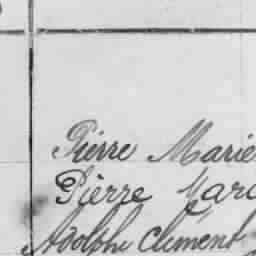 Pierre Marie
Pierre Marc
Adolphe Clement